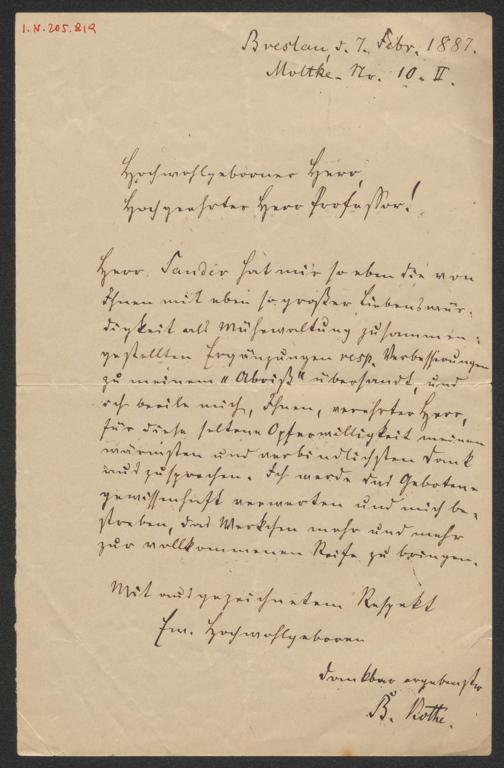 I. N. 205.819
Breslau, d. 7. Febr. 1887.
Moltke-Nr. 10. II.
Hochwohlgeborner Herr,
Hochgeehrter Herr Professor!
Herr Sander hat mir so eben die von
Ihnen mit eben so großer Liebenswür-
digkeit als Mühewaltung zusammen-
gestellten Ergänzungen resp. Verbesserungen
zu meinem „Abriß" übersandt, und
ich beeile mich, Ihnen, verehrter Herr,
für diese seltene Opferwilligkeit meinen
wärmsten und verbindlichsten Dank
auszusprechen. Ich werde das Gebotene
gewissenhaft verwerten und mich be-
streben, das Werkchen mehr und mehr
zur vollkommenen Reife zu bringen.
Mit ausgezeichnetem Respekt
Ew. Hochwohlgeboren
dankbar ergebenster
B. Kothe.